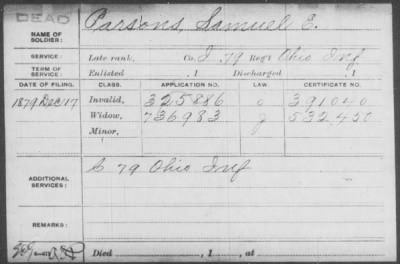 DEAD
NAME OF SOLDIER: Parsons, Samuel E.
SERVICE: Late rank, Co. I, 79 Reg't Ohio Inf
TERM OF SERVICE: Enlisted , 1 Discharged , 1
DATE OF FILING. CLASS. APPLICATION NO. LAW. CERTIFICATE NO.
1879 Dec 17 Invalid, 325886 391040
Widow, 736983 g 532450
Minor,
ADDITIONAL SERVICES: 79 Ohio Inf
REMARKS:
Died , 1 , at